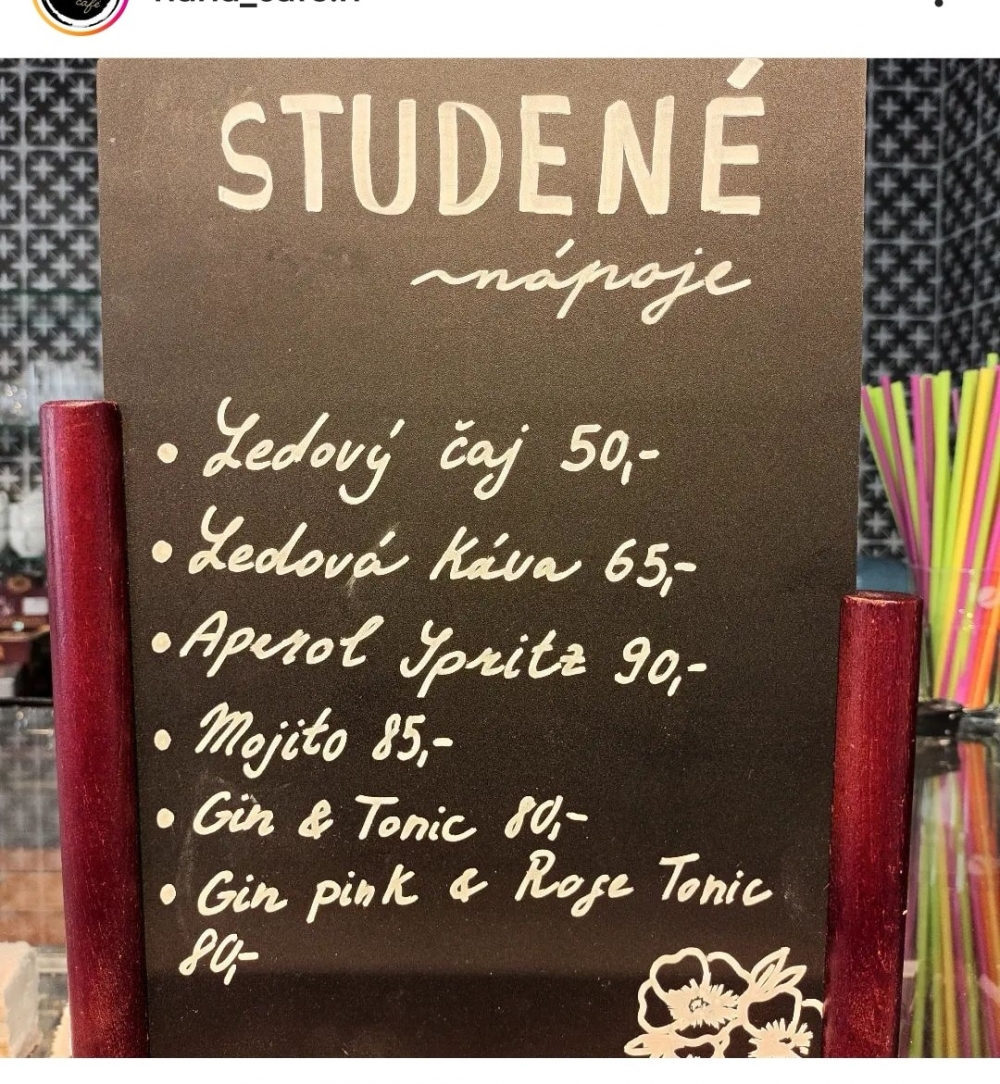 STUDENÉ
nápoje
• Ledový čaj 50,-
• Ledová Káva 65,-
• Aperol Spritz 90,-
• Mojito 85,-
• Gin & Tonic 80,-
• Gin pink & Rose Tonic
80,-